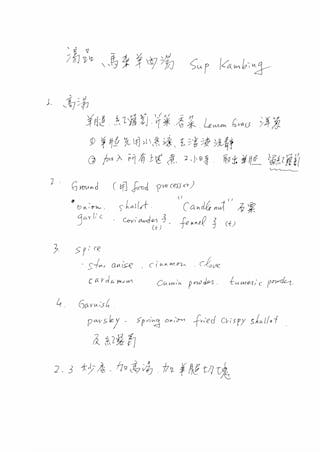 湯品、馬來羊肉湯 Sup Kambing
1. 高湯
羊腿 紅蘿蔔 芹菜 香菜 Lemon Grass 洋蔥
① 羊腿先用小魚滾、去渣後洗靜
② 加入所有上述煮 2小時 取出羊腿 留紅蘿蔔
2. Ground (用 food processor)
• onion. shallot "Candlenut" 石栗
garlic . coriander 子. fennel 子 (t)
(t)
3. spice
. star anise . cinnamon . clove
cardamom Cumin powder. tumeric powder.
4. Garnish.
parsley . spring onion fried crispy shallot.
及紅蘿蔔
2.3 炒香. 加高湯. 加羊腿切塊